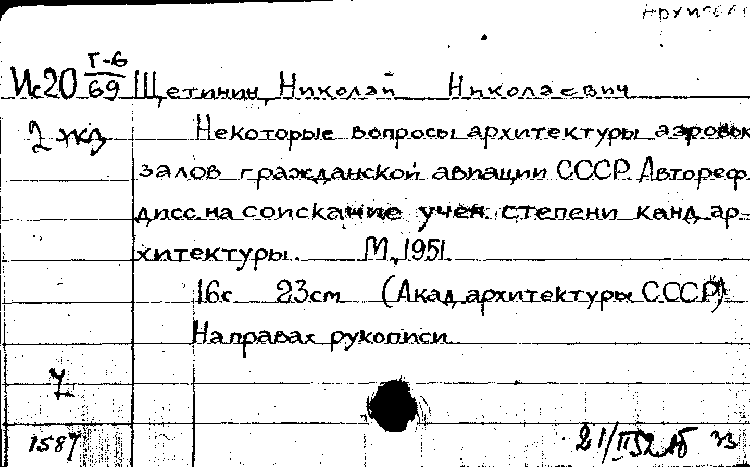 Ис20 Г-6/69 Щетинин, Николай Николаевич
2 экз Некоторые вопросы архитектуры аэровок
залов гражданской авиации СССР. Автореф.
дисс. на соискание учен. степени канд. ар-
хитектуры. М., 1951.
16с 23см (Акад. архитектуры СССР)
На правах рукописи
1587 21/II 52